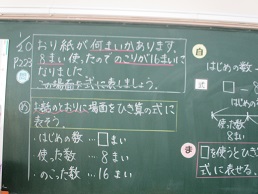 1/20
P.223
おり紙が何まいかあります。
8まい使ったのでのこりが16まいに
なりました
この場面を式に表しましょう。
め お話のとおりに場面をひき算の式に
表そう。
・はじめの数…□まい
・使った数 …8まい
・のこった数…16まい
自
はじめの数
式
□-8
使った数
8まい
ま
□を使うとひき
式に表せる。